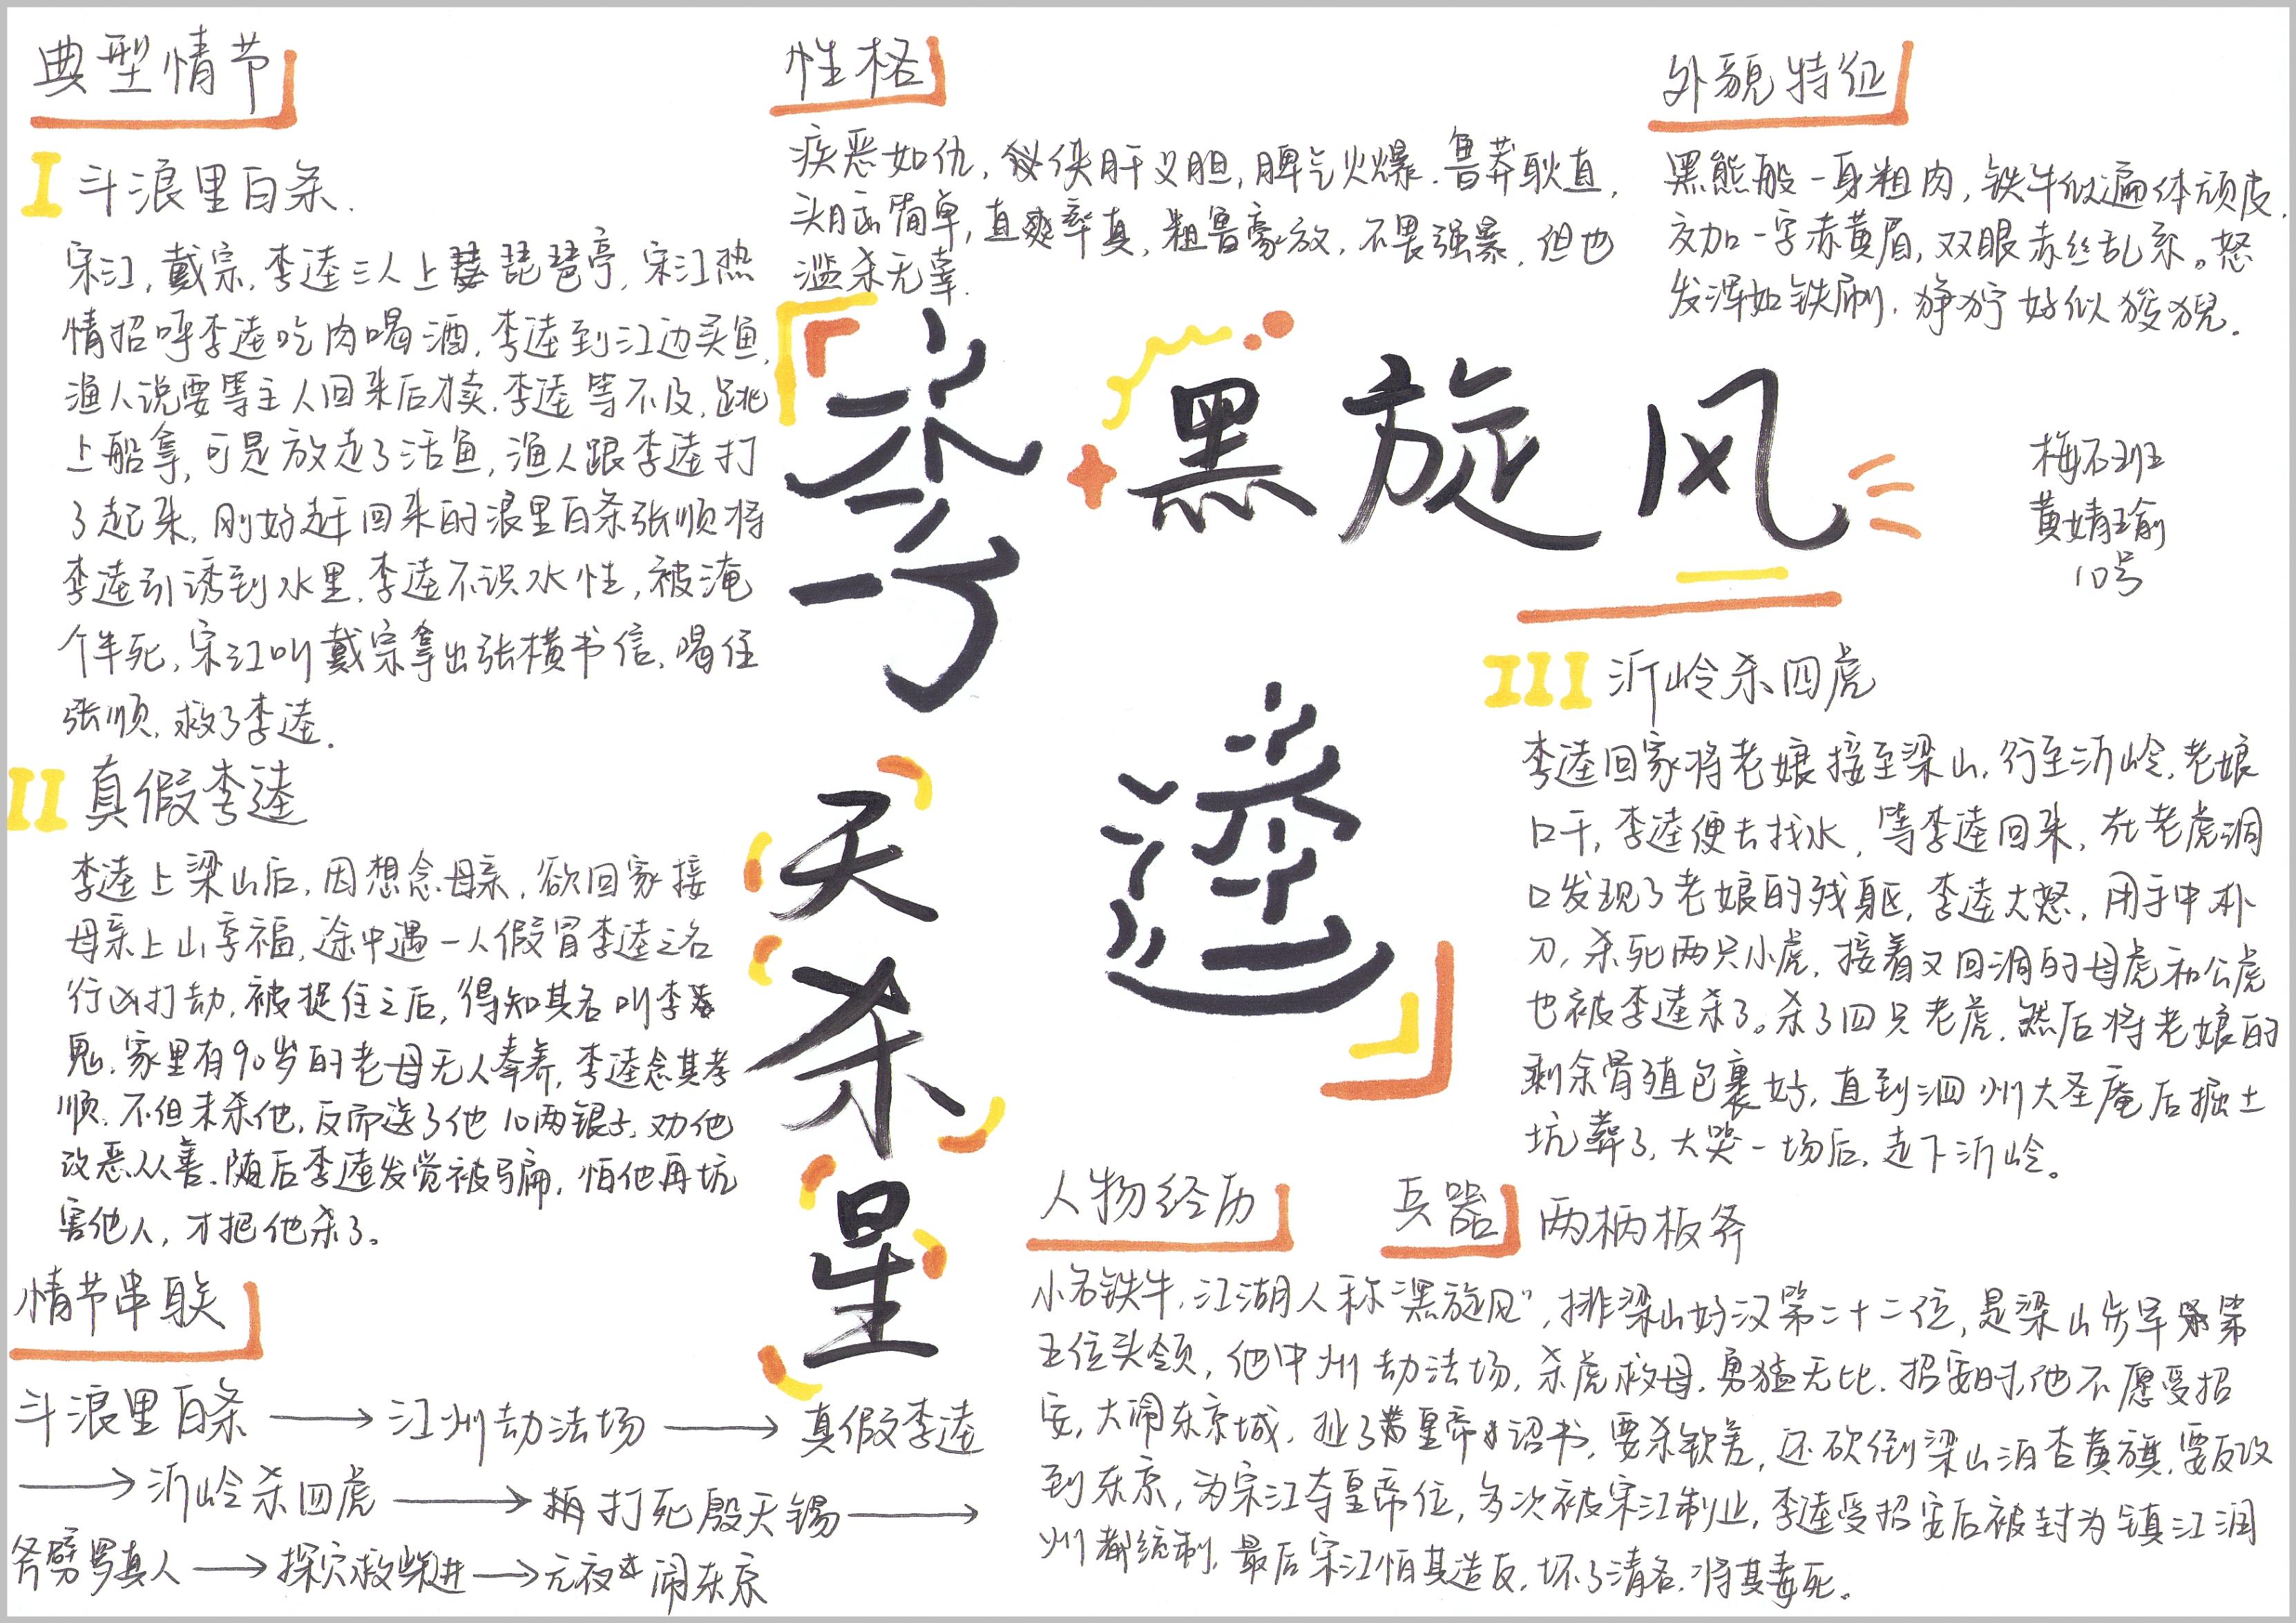 典型情节
I 斗浪里白条.
宋江,戴宗,李逵三人上琵琶亭,宋江热
情招呼李逵吃肉喝酒,李逵到江边买鱼,
渔人说要等主人回来后才卖,李逵等不及,跳
上船拿,可是放走了活鱼,渔人跟李逵打
了起来,刚好赶回来的浪里白条张顺将
李逵引诱到水里,李逵不识水性,被淹
个半死,宋江叫戴宗拿出张横书信,喝住
张顺,救了李逵.
II 真假李逵
李逵上梁山后,因想念母亲,欲回家接
母亲上山享福,途中遇一人假冒李逵之名
行凶打劫,被捉住之后,得知其名叫李
鬼,家里有90岁的老母无人奉养,李逵念其孝
顺,不但未杀他,反而送了他10两银子,劝他
改恶从善.随后李逵发觉被骗,怕他再坑
害他人,才把他杀了。
情节串联
斗浪里白条→江州劫法场→真假李逵
→沂岭杀四虎→打死殷天锡→
斧劈罗真人→探穴救柴进→元夜闹东京
性格
疾恶如仇,侠肝义胆,脾气火爆.鲁莽耿直,
头脑简单,直爽率真,粗鲁豪放,不畏强暴,但也
滥杀无辜.
外貌特征
黑熊般一身粗肉,铁牛似遍体顽皮,
交加一字赤黄眉,双眼赤丝乱系。怒
发浑如铁刷,狰狞好似狻猊.
李逵
黑旋风
天杀星
梅石班
黄婧瑜
10号
III 沂岭杀四虎
李逵回家将老娘接至梁山,行至沂岭,老娘
口干,李逵便去找水,等李逵回来,在老虎洞
口发现了老娘的残躯,李逵大怒,用手中朴
刀,杀死两只小虎,接着又回洞的母虎和公虎
也被李逵杀了。杀了四只老虎,然后将老娘的
剩余骨殖包裹好,直到泗州大圣庵后掘土
坑葬了,大哭一场后,走下沂岭。
人物经历
兵器 两柄板斧
小名铁牛,江湖人称“黑旋风”,排梁山好汉第二十二位,是梁山步军第
五位头领,他中州劫法场,杀虎救母,勇猛无比.招安时,他不愿受招
安,大闹东京城,扯了皇帝诏书,要杀钦差,还砍倒梁山泊杏黄旗,要反攻
到东京,为宋江夺皇帝位,多次被宋江制止,李逵受招安后被封为镇江润
州都统制,最后宋江怕其造反,坏了清名,将其毒死。